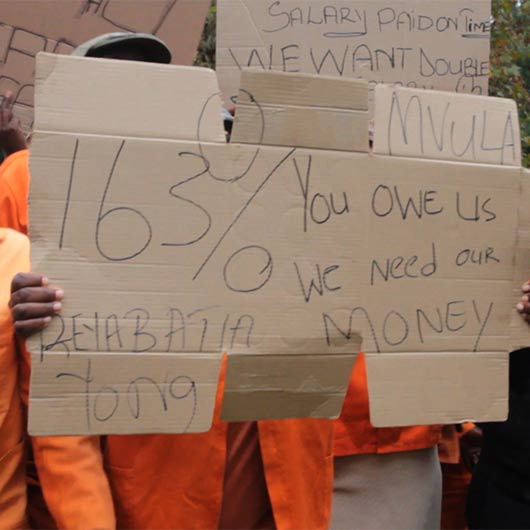 SALARY PAID ON TIME
WE WANT DOUBLE
MVULA
163% YOU OWE US
WE Need OUR
REYABATLA MONEY
Yong